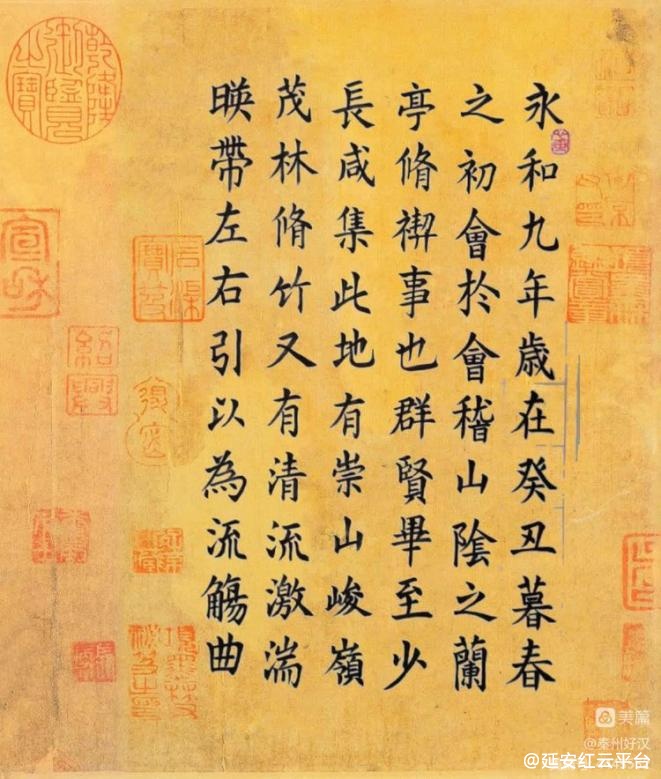 永和九年歳在癸丑暮春
之初會於會稽山隂之蘭
亭脩禊事也群賢畢至少
長咸集此地有崇山峻嶺
茂林脩竹又有清流激湍
暎帶左右引以為流觴曲
乾隆御覽之寶
石渠寶笈
宣和
紹興
美篇
@秦州好汉
@延安红云平台